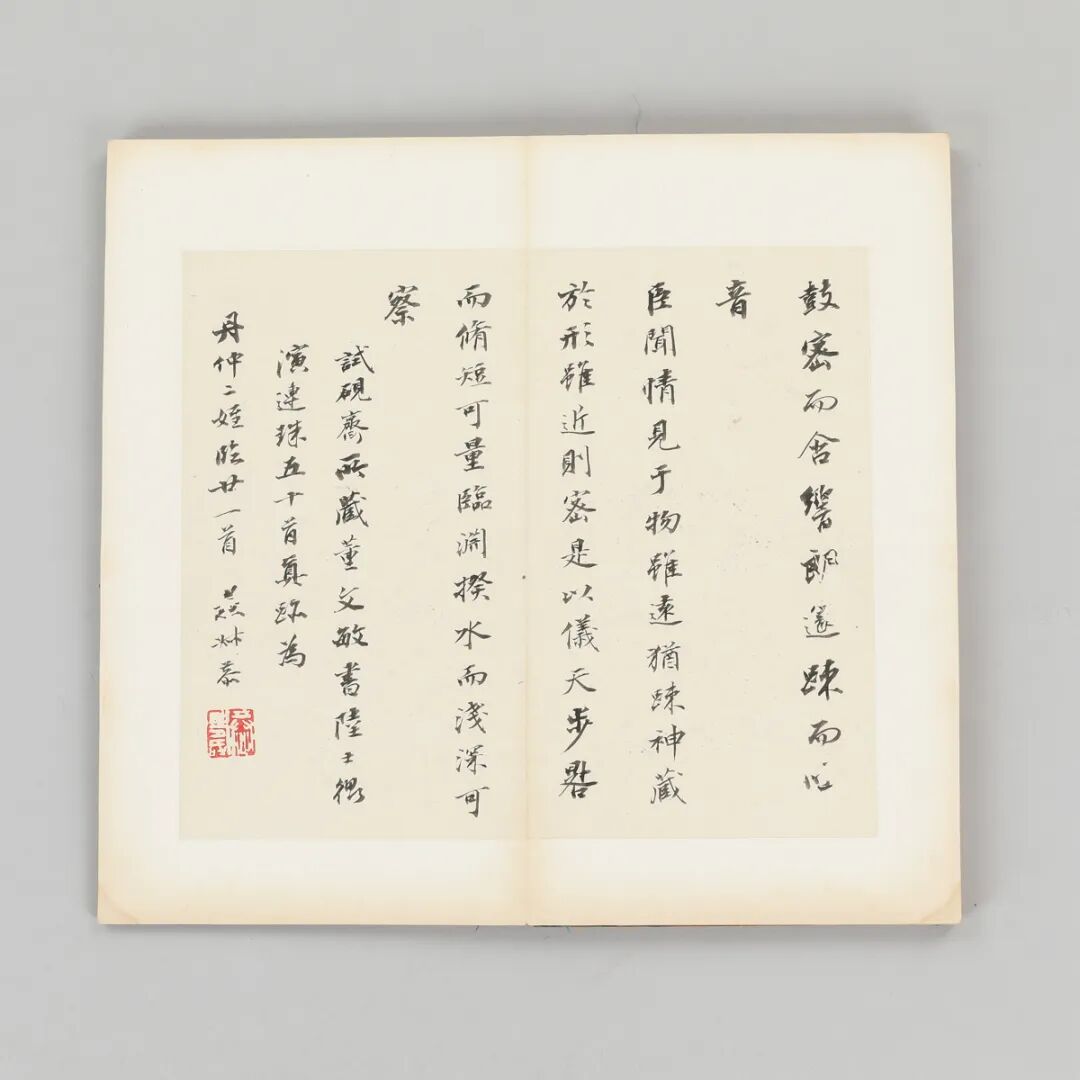 鼓密而含響朗篴踈而吐
音
臣聞情見于物雖遠猶踈神藏
於形雖近則密是以儀天步晷
而脩短可量臨淵揆水而淺深可
察
試硯齋所藏董文敏書陸士衡
演連珠五十首真跡為
丹仲二姪臨廿一首